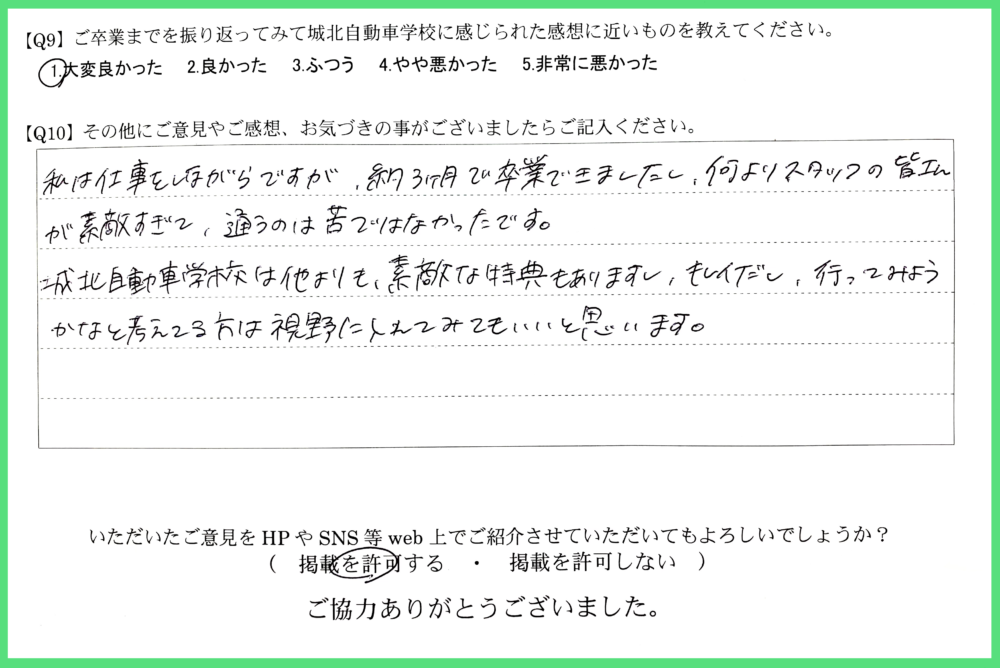 【Q9】ご卒業までを振り返ってみて城北自動車学校に感じられた感想に近いものを教えてください。
1.大変良かった 2.良かった 3.ふつう 4.やや悪かった 5.非常に悪かった
【Q10】その他にご意見やご感想、お気づきの事がございましたらご記入ください。
私は仕事をしながらですが、約3ヶ月で卒業できましたし、何よりスタッフの皆さん
が素敵すぎて、通うのは苦ではなかったです。
城北自動車学校は他よりも、素敵な特典もありますし、キレイだし、行ってみよう
かなと考えてる方は視野に入れてみてもいいと思います。
いただいたご意見をHPやSNS等web上でご紹介させていただいてもよろしいでしょうか？
（ 掲載を許可する ・ 掲載を許可しない ）
ご協力ありがとうございました。